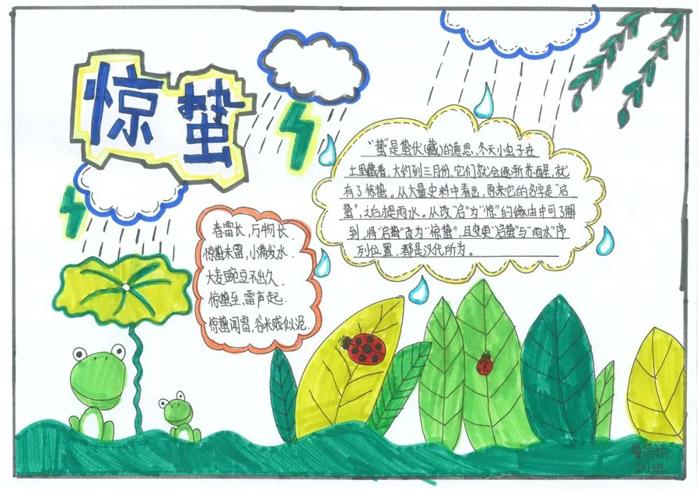 惊蛰
"蛰"是蛰伏(藏)的意思,冬天小虫子在
土里藏着,大约到三月份,它们就会逐渐苏醒,就
有了惊蛰。从大量史料中看出,原来它的名字是"启
蛰",之后是雨水,从改"启"为"惊"的缘由中可了解
到,将"启蛰"改为"惊蛰",且变更"启蛰"与"雨水"序
列位置,都是汉代所为。
春雷长,万物长.
惊蛰未雷,小满发水.
大麦豌豆不出九.
惊蛰至,雷声起.
惊蛰闻雷,谷米贱似泥.